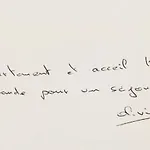 artement d'acceil h
ande pour un séjou